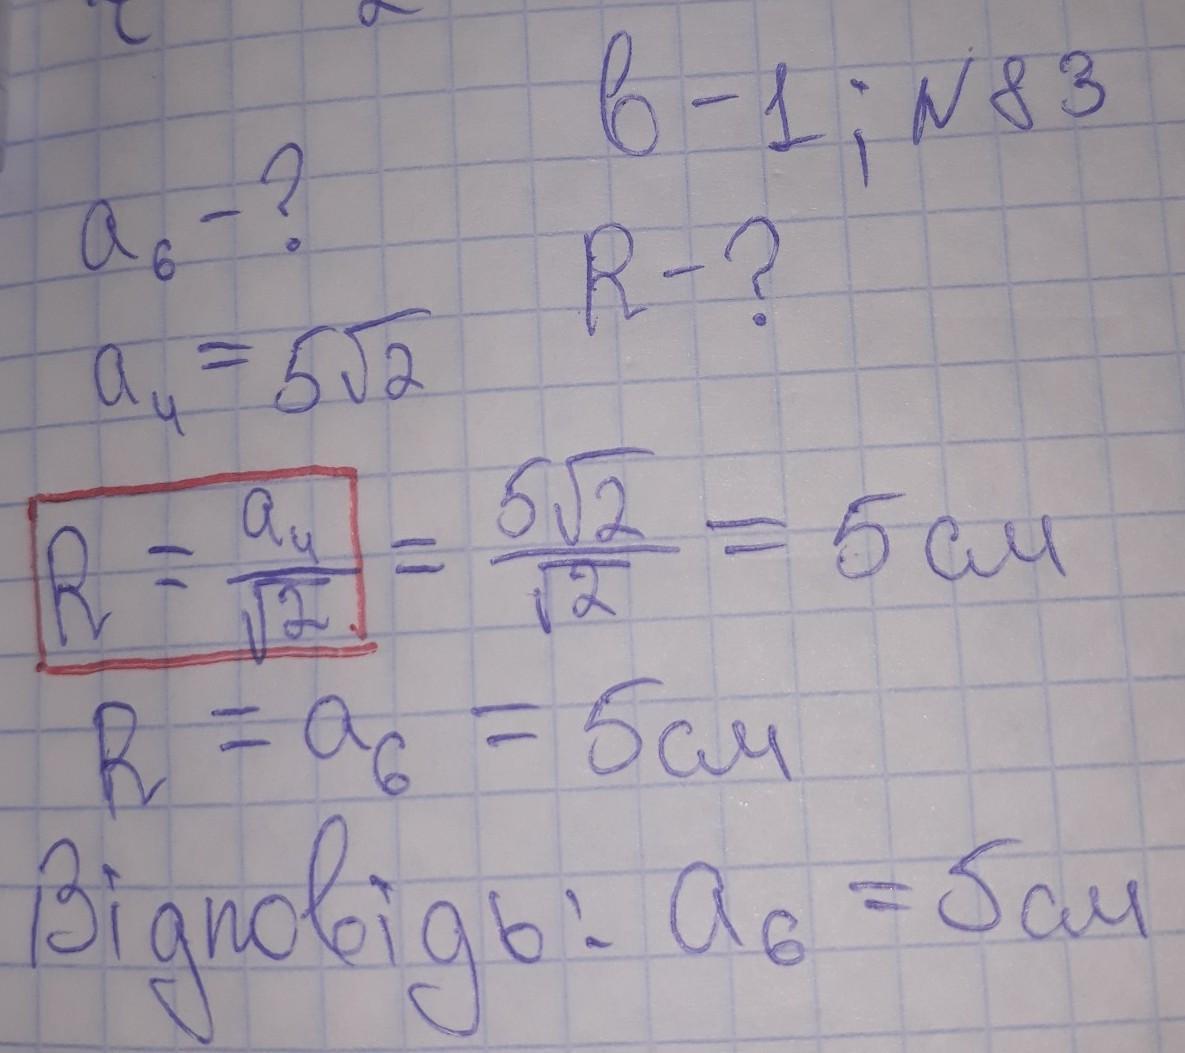 в - 1 ; № 83
a₆ - ?
R - ?
a₄ = 5√2
R = a₄/√2 = 5√2/√2 = 5 см
R = a₆ = 5 см
Відповідь: a₆ = 5 см